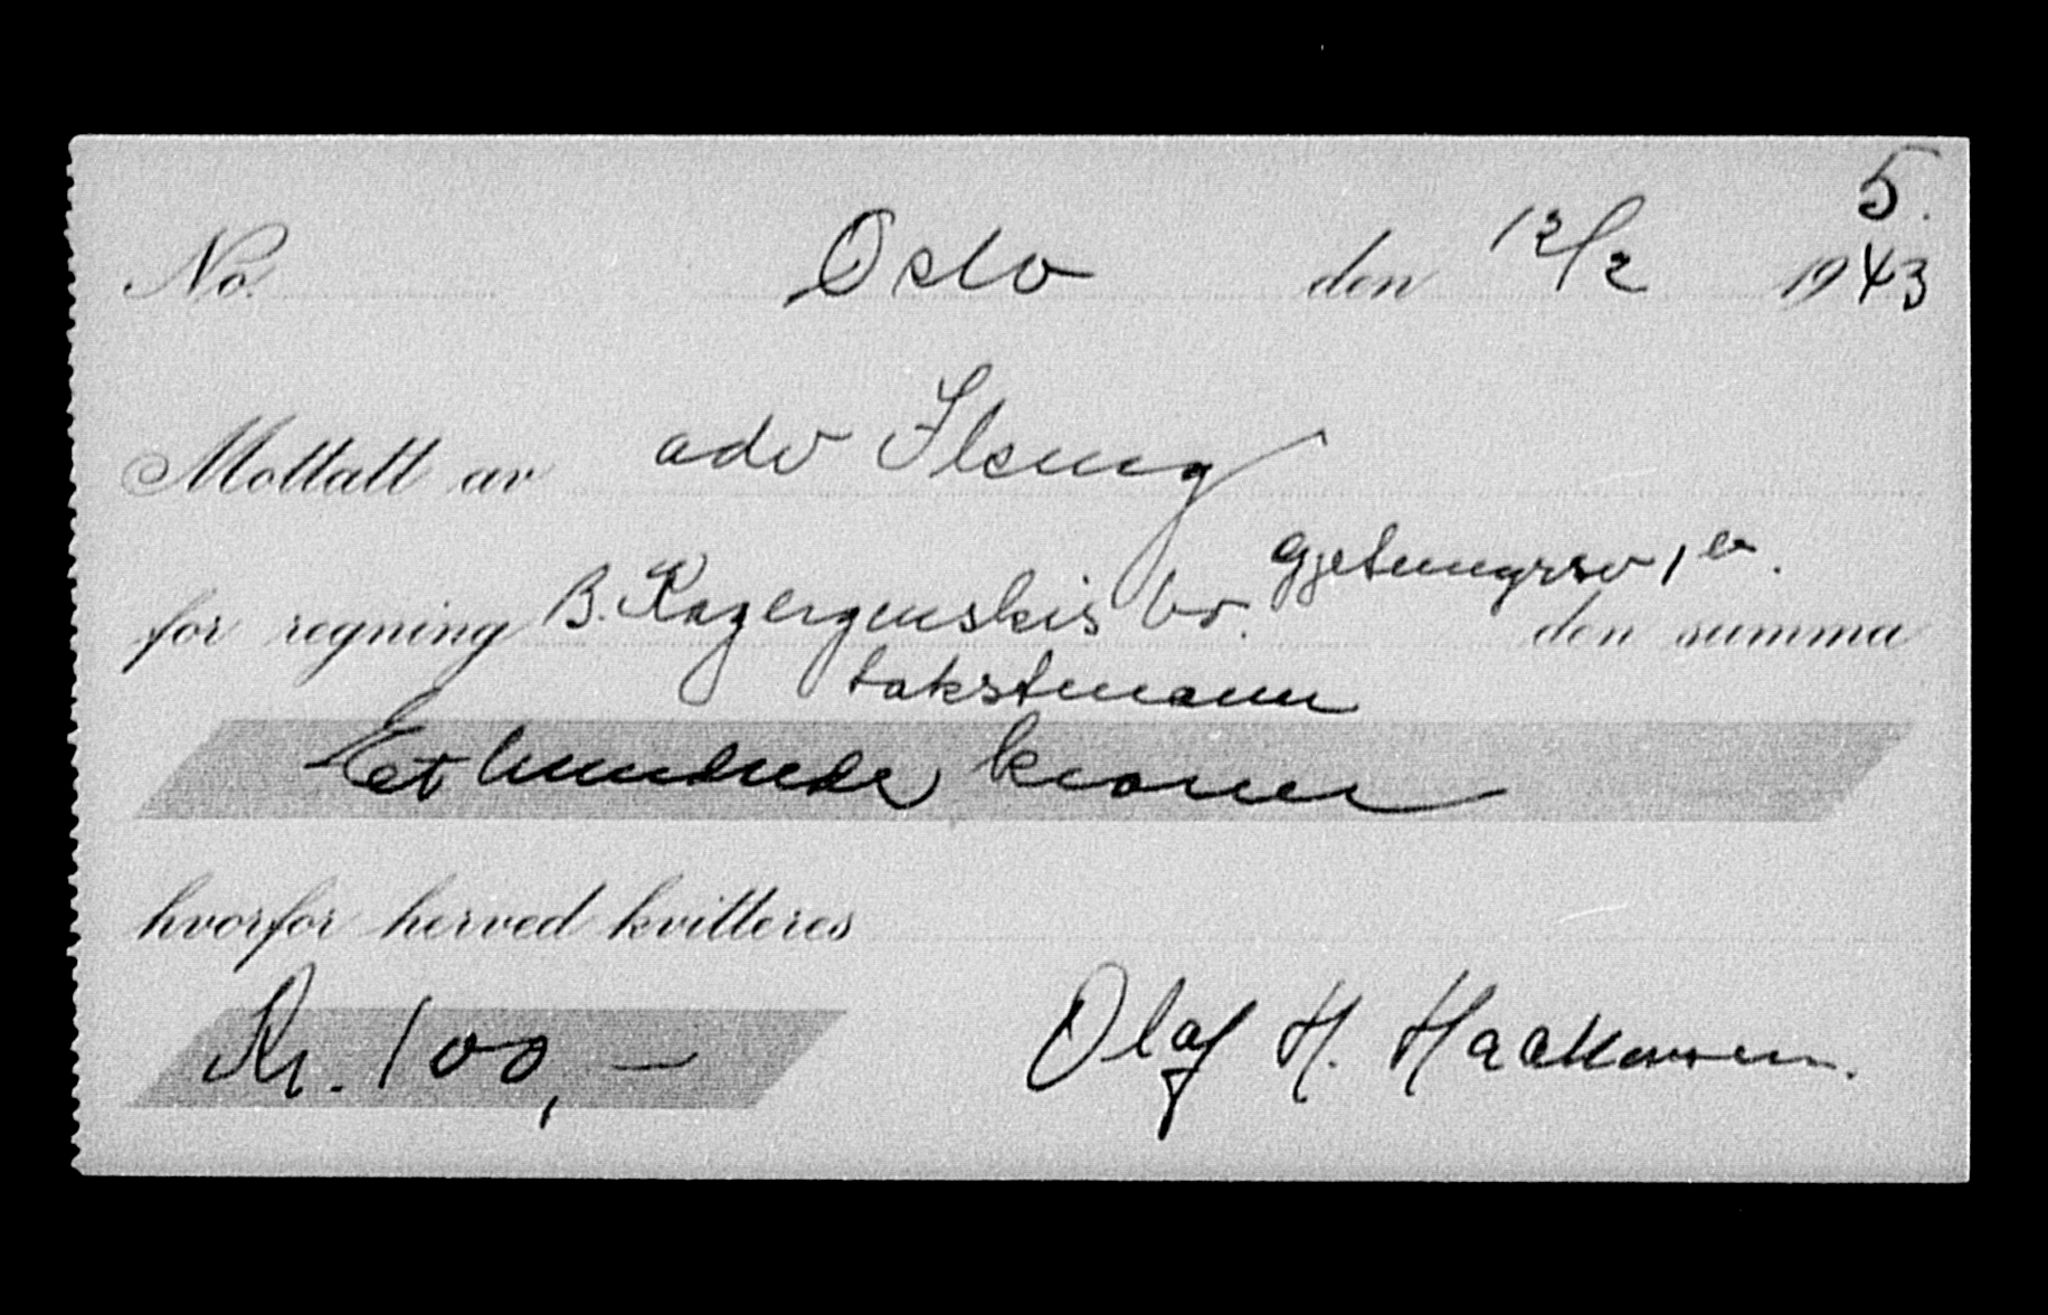 5.
No. Oslo den 12/2 1943
Mottatt av adv
for regning B. Kazerginskis bo. den summa
takstmann
Et hundrede kroner
hvorfor herved kvitteres
Kr. 100,- Olaf H. Haakonsen.